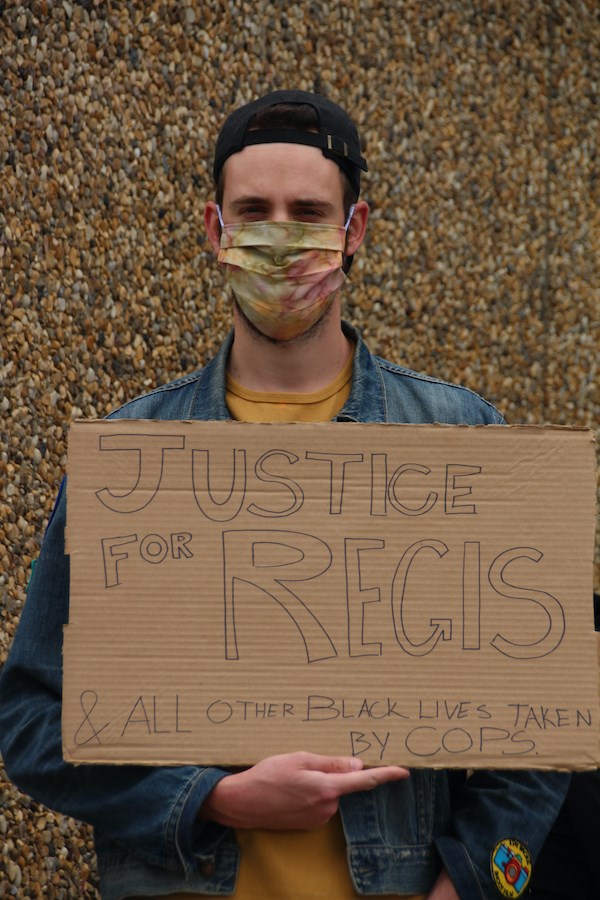 JUSTICE
FOR REGIS
& ALL OTHER BLACK LIVES TAKEN
BY COPS.